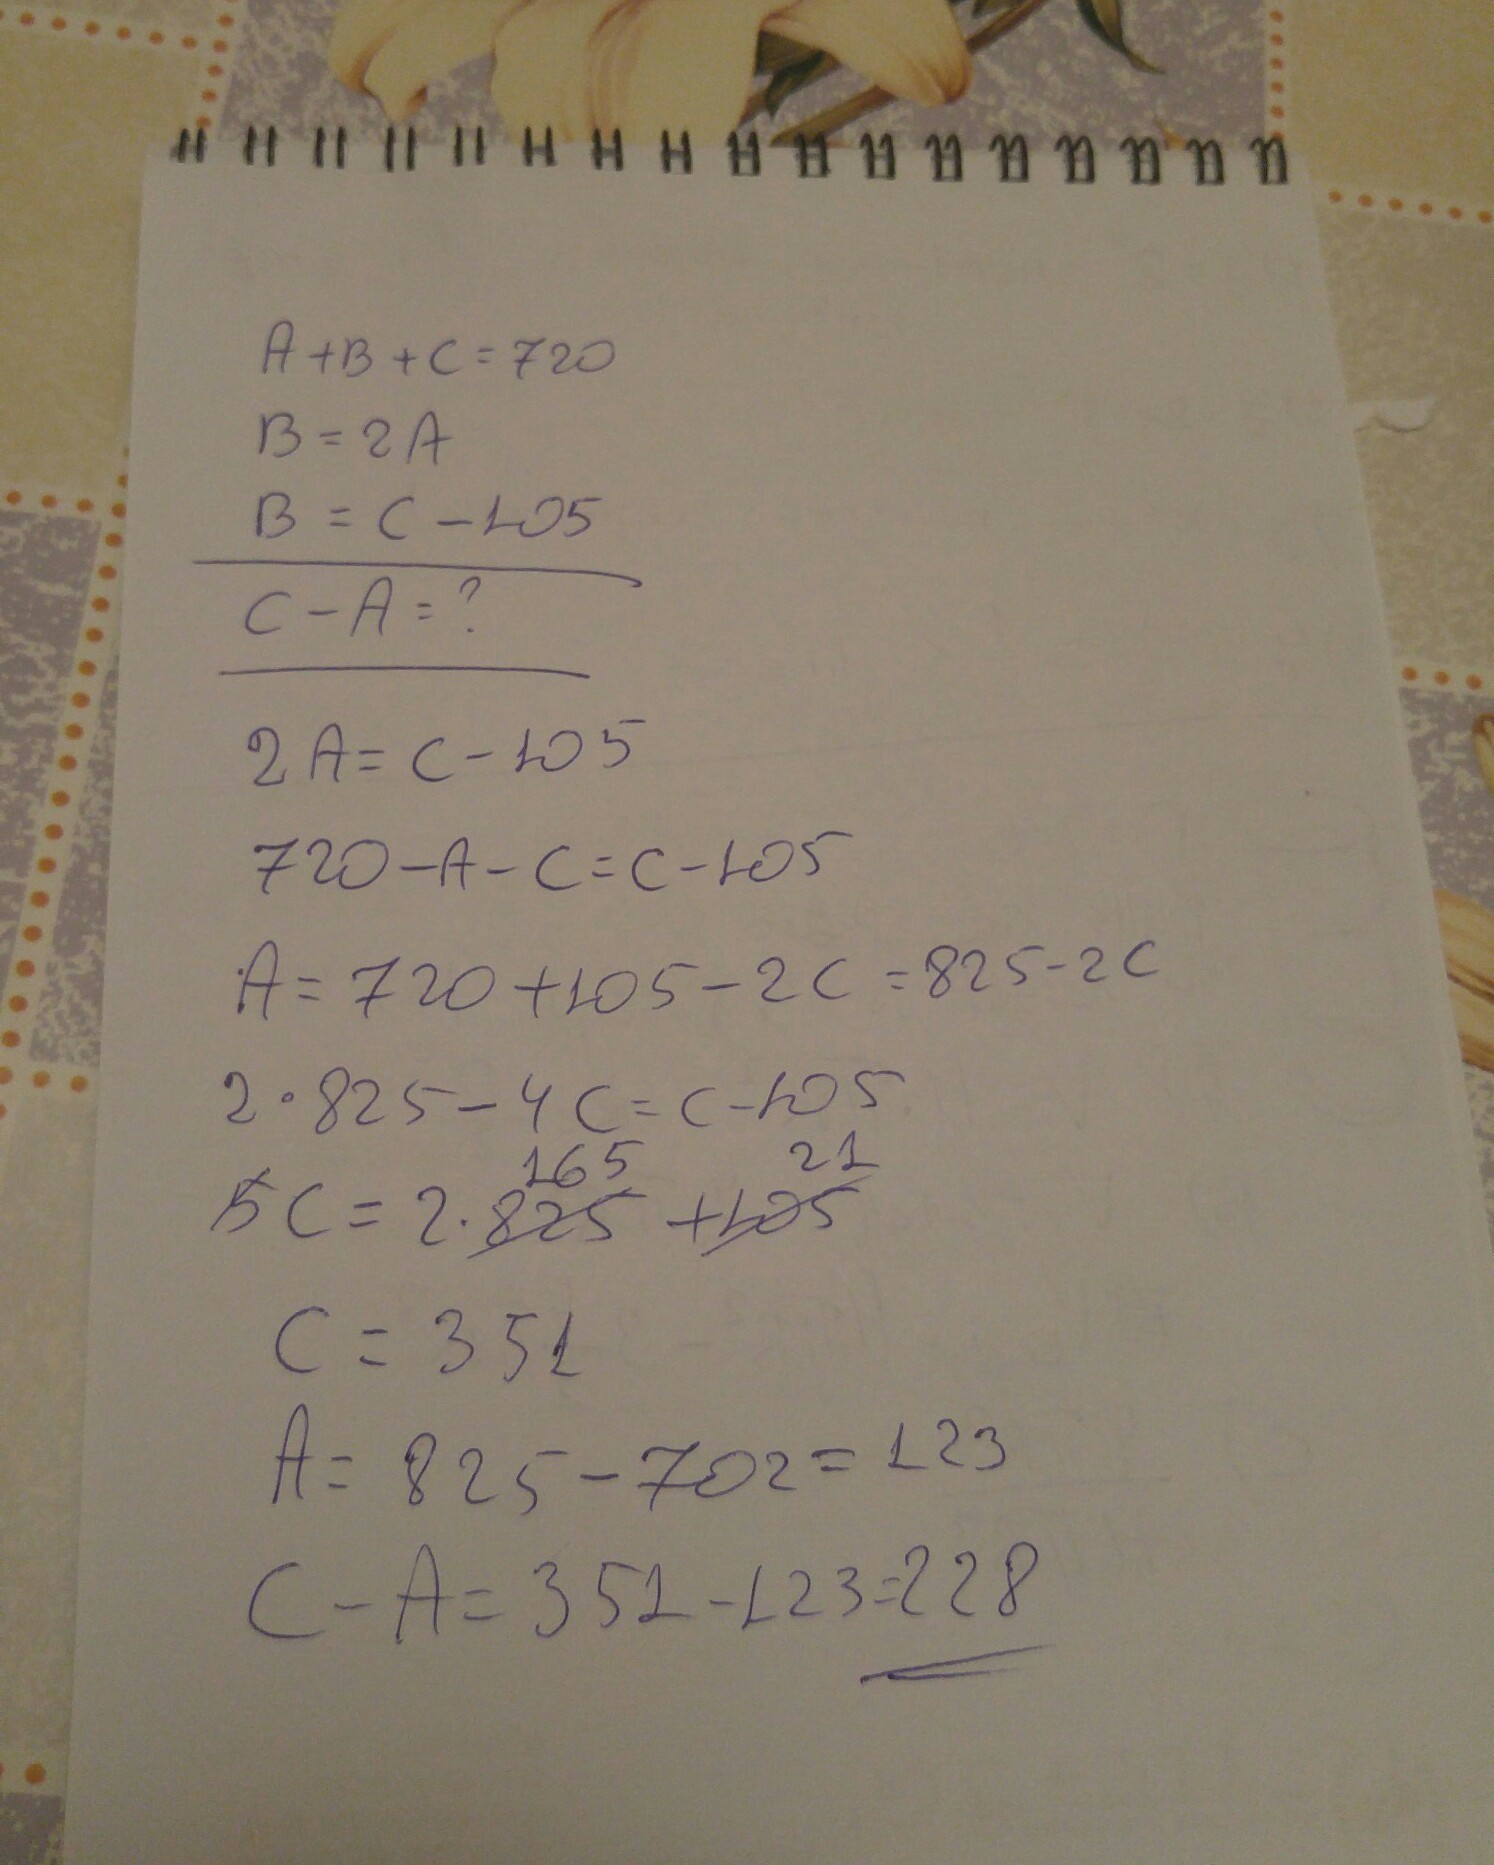 A+B+C=720
B=2A
B=C-105
C-A=?
2A=C-105
720-A-C=C-105
A=720+105-2C=825-2C
2·825-4C=C-105
165 21
5C=2·825+105
C=351
A=825-702=123
C-A=351-123=228